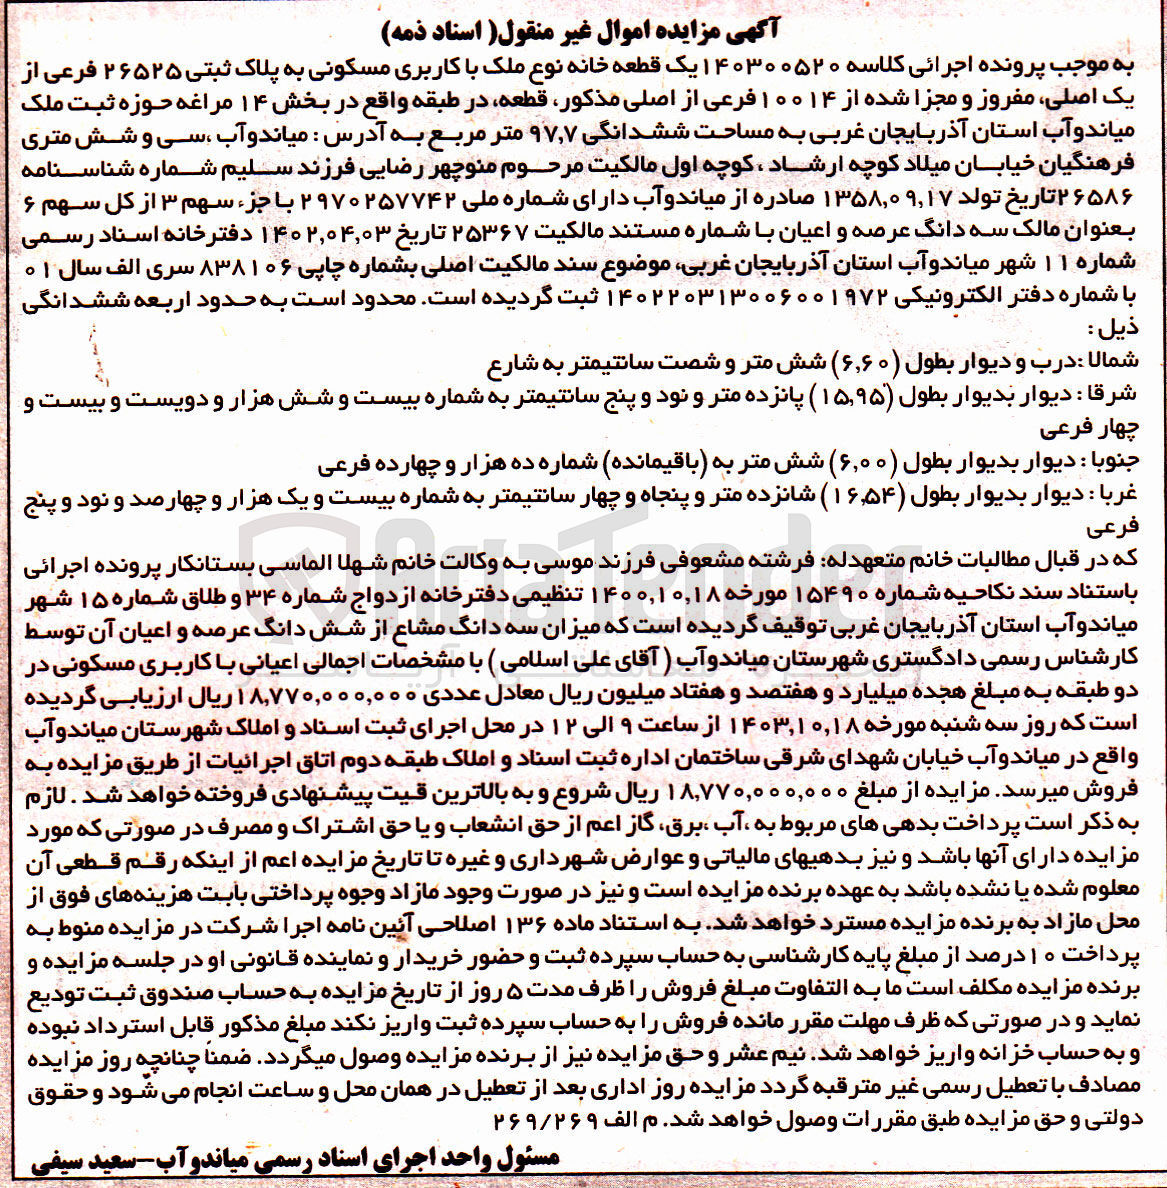 آگهی مزایده اموال غیر منقول( اسناد ذمه)
به موجب پرونده اجرائی کلاسه ۱۴۰۳۰۰۵۲۰یک قطعه خانه نوع ملک با کاربری مسکونی به پلاک ثبتی ۲۶۵۲۵ فرعی از
یک اصلی، مفروز و مجزا شده از ۱۰۰۱۴فرعی از اصلی مذکور، قطعه، در طبقه واقع در بخش ۱۴ مراغه حوزه ثبت ملک
میاندوآب استان آذربایجان غربی به مساحت ششدانگی ۹۷,۷ متر مربع به آدرس : میاندوآب ،سی و شش متری
فرهنگیان خیابان میلاد کوچه ارشاد ، کوچه اول مالکیت مرحوم منوچهر رضایی فرزند سلیم شماره شناسنامه
۲۶۵۸۶تاریخ تولد ۱۳۵۸,۰۹,۱۷ صادره از میاندوآب دارای شماره ملی ۲۹۷۰۲۵۷۷۴۲ با جزء سهم ۳ از کل سهم ۶
بعنوان مالک سه دانگ عرصه و اعیان با شماره مستند مالکیت ۲۵۳۶۷ تاریخ ۱۴۰۲,۰۴,۰۳ دفترخانه اسناد رسمی
شماره ۱۱ شهر میاندوآب استان آذربایجان غربی، موضوع سند مالکیت اصلی بشماره چاپی ۸۳۸۱۰۶ سری الف سال ۰۱
با شماره دفتر الکترونیکی ۱۴۰۲۲۰۳۱۳۰۰۶۰۰۱۹۷۲ ثبت گردیده است. محدود است به حدود اربعه ششدانگی
ذیل :
شمالا :درب و دیوار بطول (۶,۶۰) شش متر و شصت سانتیمتر به شارع
شرقا : دیوار بدیوار بطول (۱۵,۹۵) پانزده متر و نود و پنج سانتیمتر به شماره بیست و شش هزار و دویست و بیست و
چهار فرعی
جنوبا : دیوار بدیوار بطول (۶,۰۰) شش متر به (باقیمانده) شماره ده هزار و چهارده فرعی
غربا : دیوار بدیوار بطول (۱۶,۵۴) شانزده متر و پنجاه و چهار سانتیمتر به شماره بیست و یک هزار و چهارصد و نود و پنج
فرعی
که در قبال مطالبات خانم متعهدله: فرشته مشعوفی فرزند موسی به وکالت خانم شهلا الماسی بستانکار پرونده اجرائی
باستناد سند نکاحیه شماره ۱۵۴۹۰ مورخه ۱۴۰۰,۱۰,۱۸ تنظیمی دفترخانه ازدواج شماره ۳۴ و طلاق شماره ۱۵ شهر
میاندوآب استان آذربایجان غربی توقیف گردیده است که میزان سه دانگ مشاع از شش دانگ عرصه و اعیان آن توسط
کارشناس رسمی دادگستری شهرستان میاندوآب ( آقای علی اسلامی ) با مشخصات اجمالی اعیانی با کاربری مسکونی در
دو طبقه به مبلغ هجده میلیارد و هفتصد و هفتاد میلیون ریال معادل عددی ۱۸,۷۷۰,۰۰۰,۰۰۰ریال ارزیابی گردیده
است که روز سه شنبه مورخه ۱۴۰۳,۱۰,۱۸ از ساعت ۹ الی ۱۲ در محل اجرای ثبت اسناد و املاک شهرستان میاندوآب
واقع در میاندوآب خیابان شهدای شرقی ساختمان اداره ثبت اسناد و املاک طبقه دوم اتاق اجرائیات از طریق مزایده به
فروش میرسد. مزایده از مبلغ ۱۸,۷۷۰,۰۰۰,۰۰۰ ریال شروع و به بالاترین قیت پیشنهادی فروخته خواهد شد . لازم
به ذکر است پرداخت بدهی های مربوط به ،آب ،برق، گاز اعم از حق انشعاب و یا حق اشتراک و مصرف در صورتی که مورد
مزایده دارای آنها باشد و نیز بدهیهای مالیاتی و عوارض شهرداری و غیره تا تاریخ مزایده اعم از اینکه رقم قطعی آن
معلوم شده یا نشده باشد به عهده برنده مزایده است و نیز در صورت وجود مازاد وجوه پرداختی بابت هزینه‌های فوق از
محل مازاد به برنده مزایده مسترد خواهد شد. به استناد ماده ۱۳۶ اصلاحی آئین نامه اجرا شرکت در مزایده منوط به
پرداخت ۱۰درصد از مبلغ پایه کارشناسی به حساب سپرده ثبت و حضور خریدار و نماینده قانونی او در جلسه مزایده و
برنده مزایده مکلف است ما به التفاوت مبلغ فروش را ظرف مدت ۵ روز از تاریخ مزایده به حساب صندوق ثبت تودیع
نماید و در صورتی که ظرف مهلت مقرر مانده فروش را به حساب سپرده ثبت واریز نکند مبلغ مذکور قابل استرداد نبوده
و به حساب خزانه واریز خواهد شد. نیم عشر و حق مزایده نیز از برنده مزایده وصول میگردد. ضمناً چنانچه روز مزایده
مصادف با تعطیل رسمی غیر مترقبه گردد مزایده روز اداری بعد از تعطیل در همان محل و ساعت انجام می شود و حقوق
دولتی و حق مزایده طبق مقررات وصول خواهد شد. م الف ۲۶۹/۲۶۹
مسئول واحد اجرای اسناد رسمی میاندوآب–سعید سیفی
AriaTender